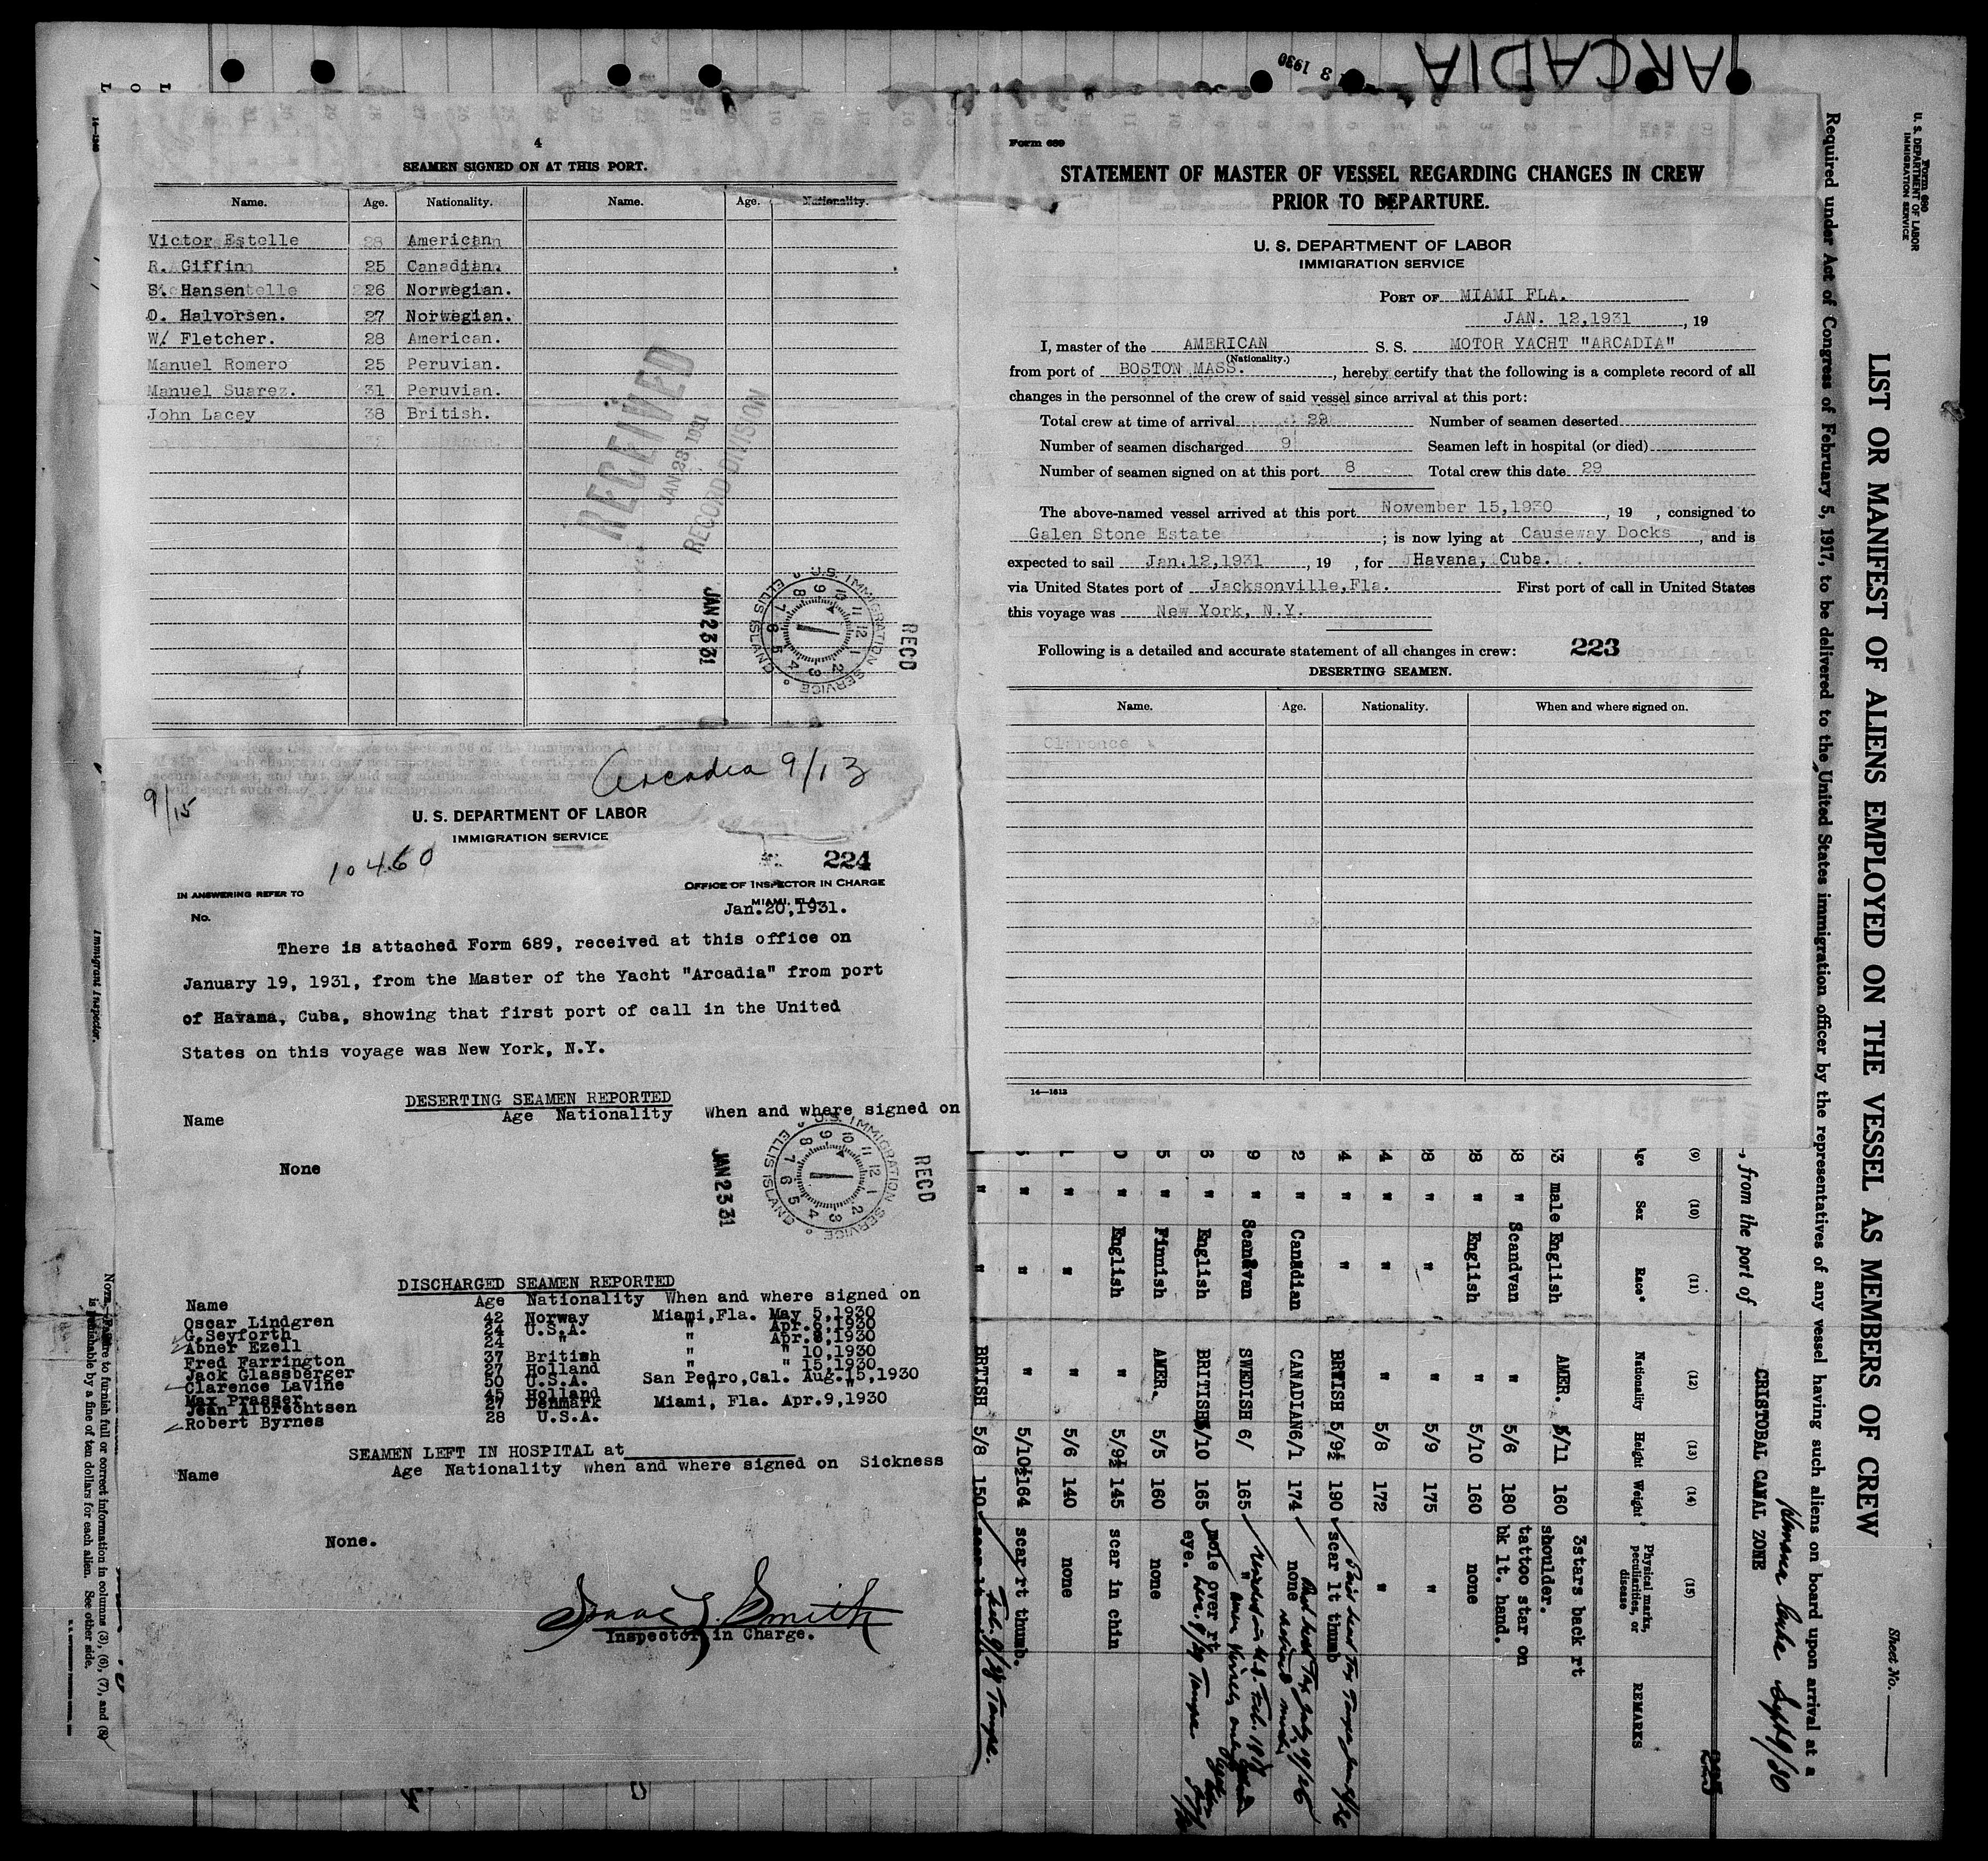 4
SEAMEN SIGNED ON AT THIS PORT.
Name. Age. Nationality. Name. Age. Nationality.
Victor Estelle 28 American
R. Giffin 25 Canadian.
S. Hansen 26 Norwegian.
O. Halvorsen. 27 Norwegian.
W. Fletcher. 28 American.
Manuel Romero 25 Peruvian.
Manuel Suarez. 31 Peruvian.
John Lacey 38 British.
RECEIVED
JAN 23 1931
RECORD DIVISION
RECD
U.S. IMMIGRATION SERVICE
ELLIS ISLAND
JAN 23 31
Arcadia 9/13
9/15
U. S. DEPARTMENT OF LABOR
IMMIGRATION SERVICE
10460
224
IN ANSWERING REFER TO
No.
OFFICE OF INSPECTOR IN CHARGE
MIAMI, FLA.
Jan.20,1931.
There is attached Form 689, received at this office on
January 19, 1931, from the Master of the Yacht "Arcadia" from port
of Havana, Cuba, showing that first port of call in the United
States on this voyage was New York, N.Y.
DESERTING SEAMEN REPORTED
Name Age Nationality When and where signed on
None
RECD
U.S. IMMIGRATION SERVICE
ELLIS ISLAND
JAN 23 31
DISCHARGED SEAMEN REPORTED
Name Age Nationality When and where signed on
Oscar Lindgren 42 Norway Miami,Fla. May 5,1930
G.Seyforth 24 U.S.A. " Apr.6,1930
Abner Ezell 24 " " Apr.8,1930
Fred Farrington 37 British " " 10,1930
Jack Glassberger 27 Holland " " 15,1930
Clarence LaVine 50 U.S.A. San Pedro,Cal. Aug.15,1930
Max Prasser 45 Holland " "
Jean Albrechtsen 27 Denmark Miami, Fla. Apr.9,1930
Robert Byrnes 28 U.S.A.
SEAMEN LEFT IN HOSPITAL at
Name Age Nationality When and where signed on Sickness
None.
Isaac L. Smith
Inspector in Charge.
Form 689
STATEMENT OF MASTER OF VESSEL REGARDING CHANGES IN CREW
PRIOR TO DEPARTURE.
U. S. DEPARTMENT OF LABOR
IMMIGRATION SERVICE
PORT OF MIAMI FLA.
JAN. 12,1931, 19
I, master of the AMERICAN S. S. MOTOR YACHT "ARCADIA"
(Nationality.)
from port of BOSTON MASS., hereby certify that the following is a complete record of all
changes in the personnel of the crew of said vessel since arrival at this port:
Total crew at time of arrival 29 Number of seamen deserted
Number of seamen discharged 9 Seamen left in hospital (or died)
Number of seamen signed on at this port 8 Total crew this date 29
The above-named vessel arrived at this port November 15,1930, 19 , consigned to
Galen Stone Estate; is now lying at Causeway Docks, and is
expected to sail Jan.12,1931, 19 , for Havana, Cuba.
via United States port of Jacksonville,Fla. First port of call in United States
this voyage was New York, N.Y.
Following is a detailed and accurate statement of all changes in crew: 223
DESERTING SEAMEN.
Name. Age. Nationality. When and where signed on.
Clarence
14—1613
ARCADIA
3 1930
Form 680
U. S. DEPARTMENT OF LABOR
IMMIGRATION SERVICE
LIST OR MANIFEST OF ALIENS EMPLOYED ON THE VESSEL AS MEMBERS OF CREW
Sheet No.
Required under Act of Congress of February 5, 1917, to be delivered to the United States immigration officer by the representatives of any vessel having such aliens on board upon arrival at a
, from the port of CRISTOBAL CANAL ZONE
Havana Cuba Sept 9/30
225
(9) (10) (11) (12) (13) (14) (15)
Age Sex Race* Nationality Height Weight Physical marks, peculiarities, or disease REMARKS
33 male English AMER. 5/11 160 3stars back rt shoulder.
38 " Scandvan " 5/6 180 tattoo star on bk lt. hand.
28 " English " 5/10 160 none
28 " " " 5/9 175 "
24 " " " 5/8 172 "
4 " " BRITISH 5/9½ 190 scar lt thumb
2 " Canadian CANADIAN 6/1 174 none
9 " Scandvan SWEDISH 6/ 165 "
6 " English BRITISH 5/10 165 mole over rt eye.
5 " Finnish AMER. 5/5 160 none
0 " English " 5/9½ 145 scar in chin
" " " 5/6 140 none
" " " 5/10½ 164 scar rt thumb.
" " BRITISH 5/8 150
Immigrant Inspector.
NOTE.—Failure to furnish full or correct information in columns (3), (6), (7), and (8)
is punishable by a fine of ten dollars for each alien. See other side.